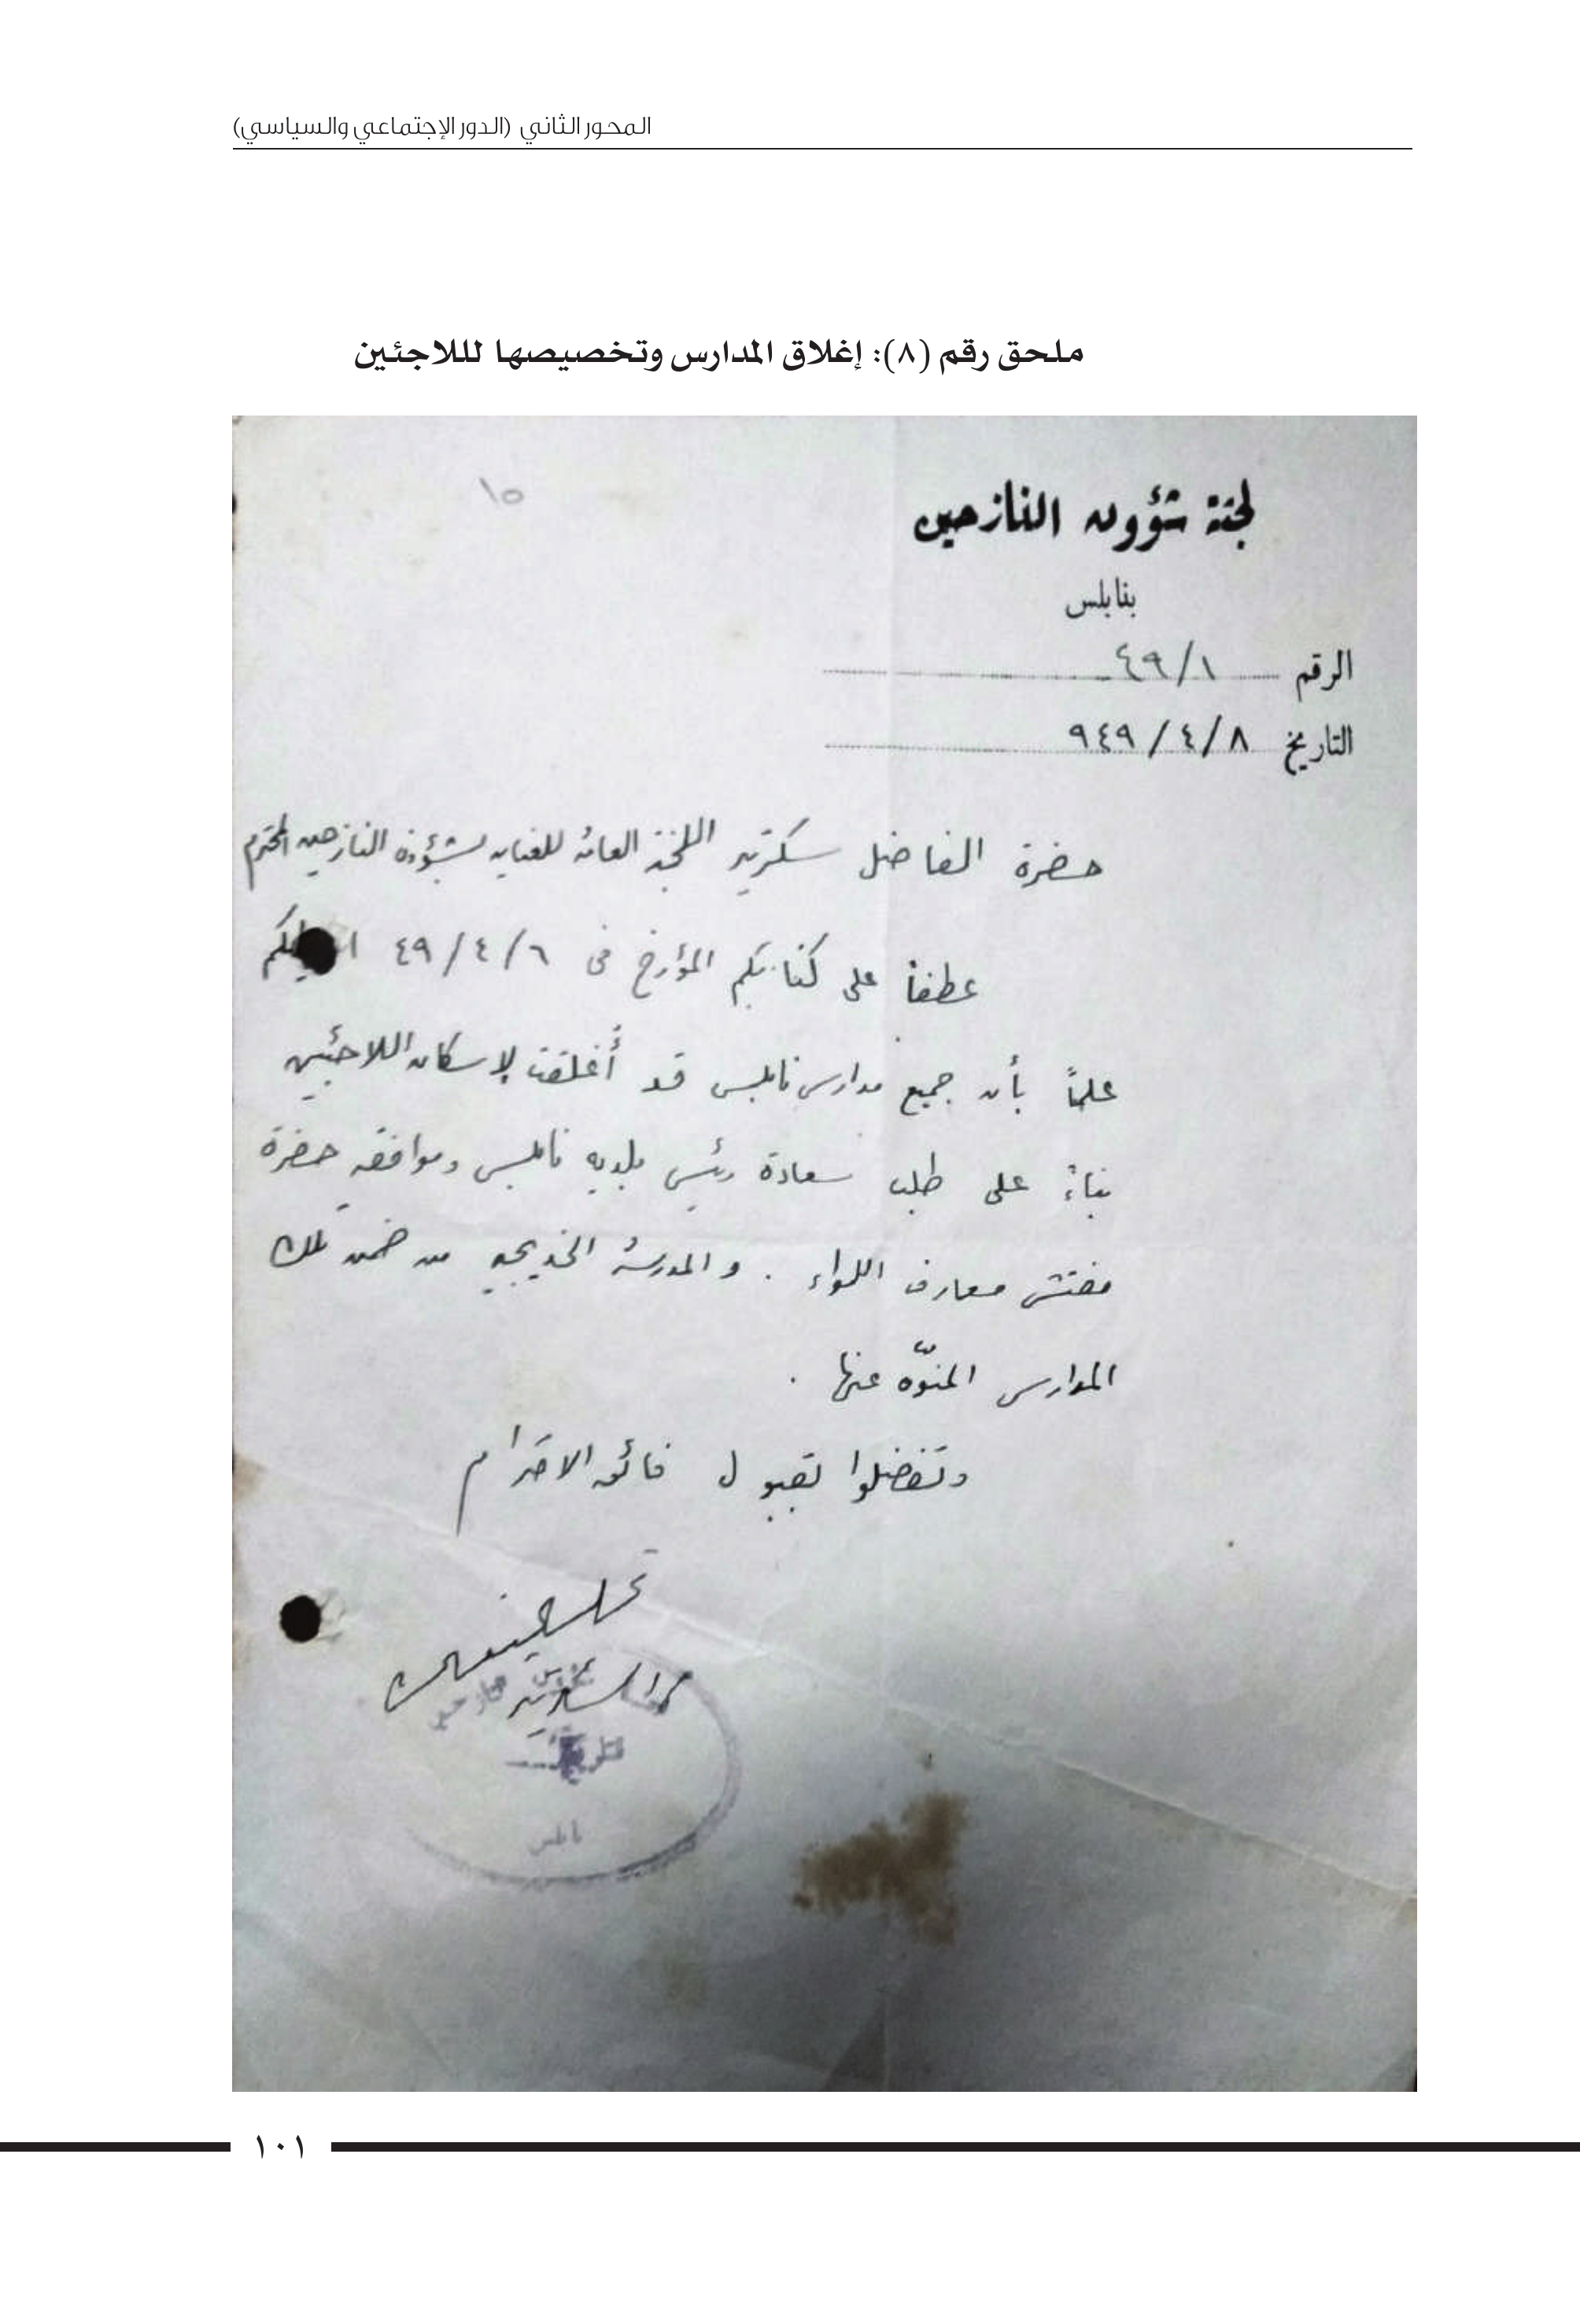 المحور الثاني (الدور الإجتماعي والسياسي)
ملحق رقم (٨): إغلاق المدارس وتخصيصها لللاجئين
١٥
لجنة شؤون النازحين
بنابلس
الرقم ٤٩/١
التاريخ ٩٤٩/٤/٨
حضرة الفاضل سكرتير اللجنة العامة للعناية بشؤون النازحين المحترم
عطفاً على كتابكم المؤرخ في ٤٩/٤/٦
علماً بأن جميع مدارس نابلس قد أُغلقت لإسكان اللاجئين
بناءً على طلب سعادة رئيس بلدية نابلس وموافقة حضرة
مفتش معارف اللواء . والمدرسة الخديجية من ضمن تلك
المدارس المنوّه عنها .
وتفضلوا بقبول فائق الاحترام
نابلس
١٠١